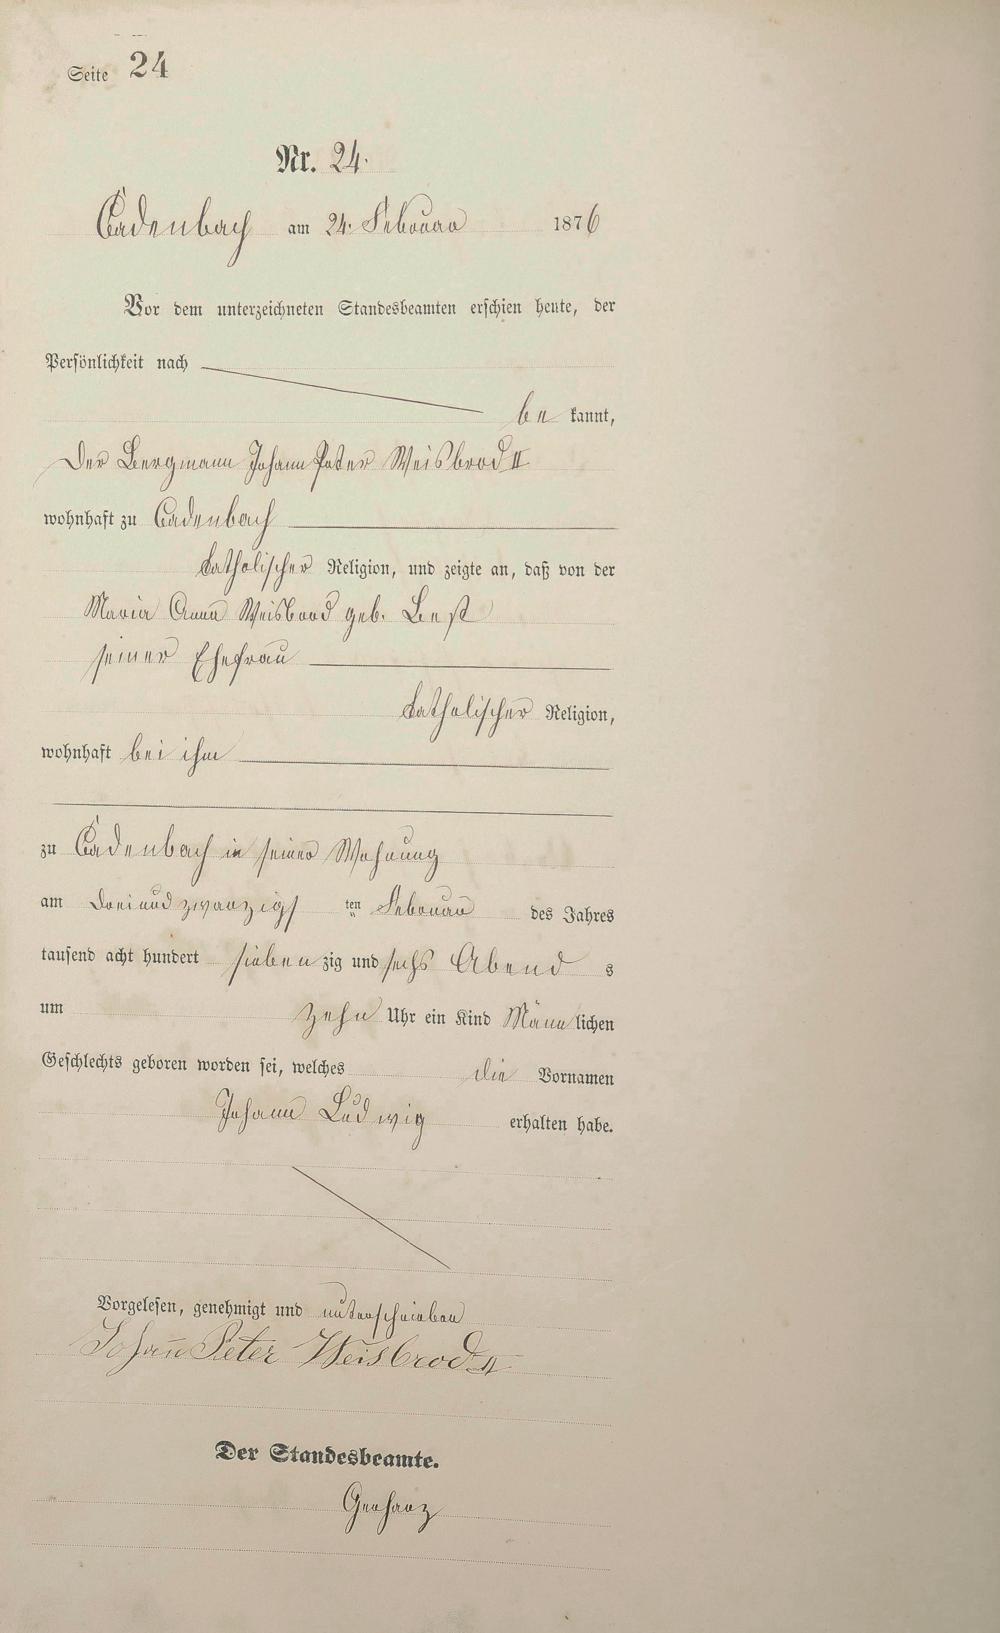 Seite 24
Nr. 24.
Cadenbach am 24. Februar 1876
Vor dem unterzeichneten Standesbeamten erschien heute, der
Persönlichkeit nach
be kannt,
der Bergmann Johann Peter Weisbrod II
wohnhaft zu Cadenbach
katholischer Religion, und zeigte an, daß von der
Maria Anna Weisbrod geb. Best
seiner Ehefrau
katholischer Religion,
wohnhaft bei ihm
zu Cadenbach in seiner Wohnung
am dreiundzwanzigs ten Februar des Jahres
tausend acht hundert siebenzig und sechs Abend s
um zehn Uhr ein Kind Männlichen
Geschlechts geboren worden sei, welches die Vornamen
Johann Ludwig erhalten habe.
Vorgelesen, genehmigt und unterschrieben
Johann Peter Weisbrod II
Der Standesbeamte.
Gerharz